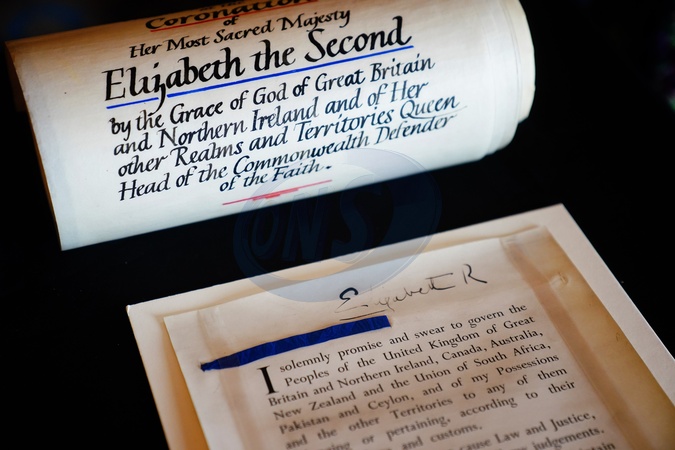 Coronation
of
Her Most Sacred Majesty
Elizabeth the Second
by the Grace of God of Great Britain
and Northern Ireland and of Her
other Realms and Territories Queen
Head of the Commonwealth Defender
of the Faith.
ONS
Elizabeth R
I solemnly promise and swear to govern the
Peoples of the United Kingdom of Great
Britain and Northern Ireland, Canada, Australia,
New Zealand and the Union of South Africa,
Pakistan and Ceylon, and of my Possessions
and the other Territories to any of them
or pertaining, according to their
and customs.
cause Law and Justice,
judgements.